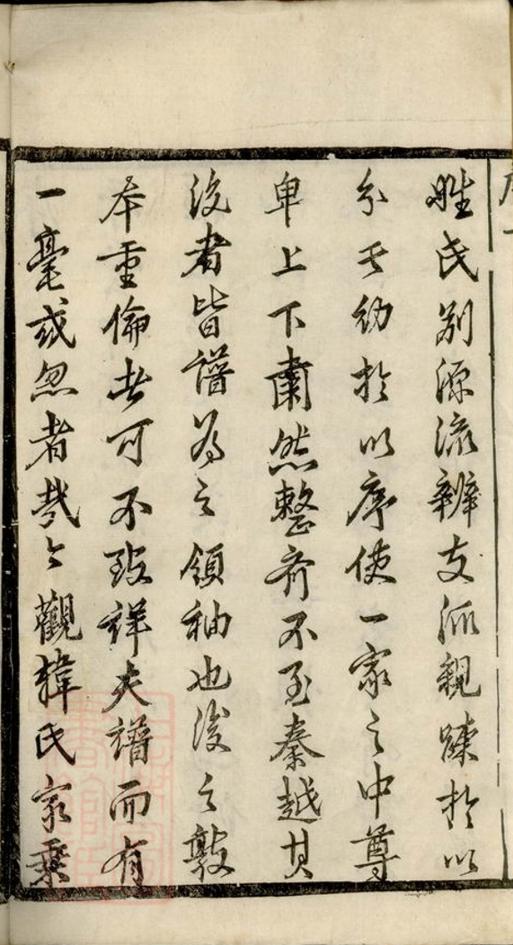 姓氏别源流辨支派親踈於以
分長幼於以序使一家之中尊
卑上下肅然整齊不至秦越其
後者皆譜為之領袖也後之敦
本重倫者可不致詳夫譜而有
一毫或忽者哉今觀韓氏家乘